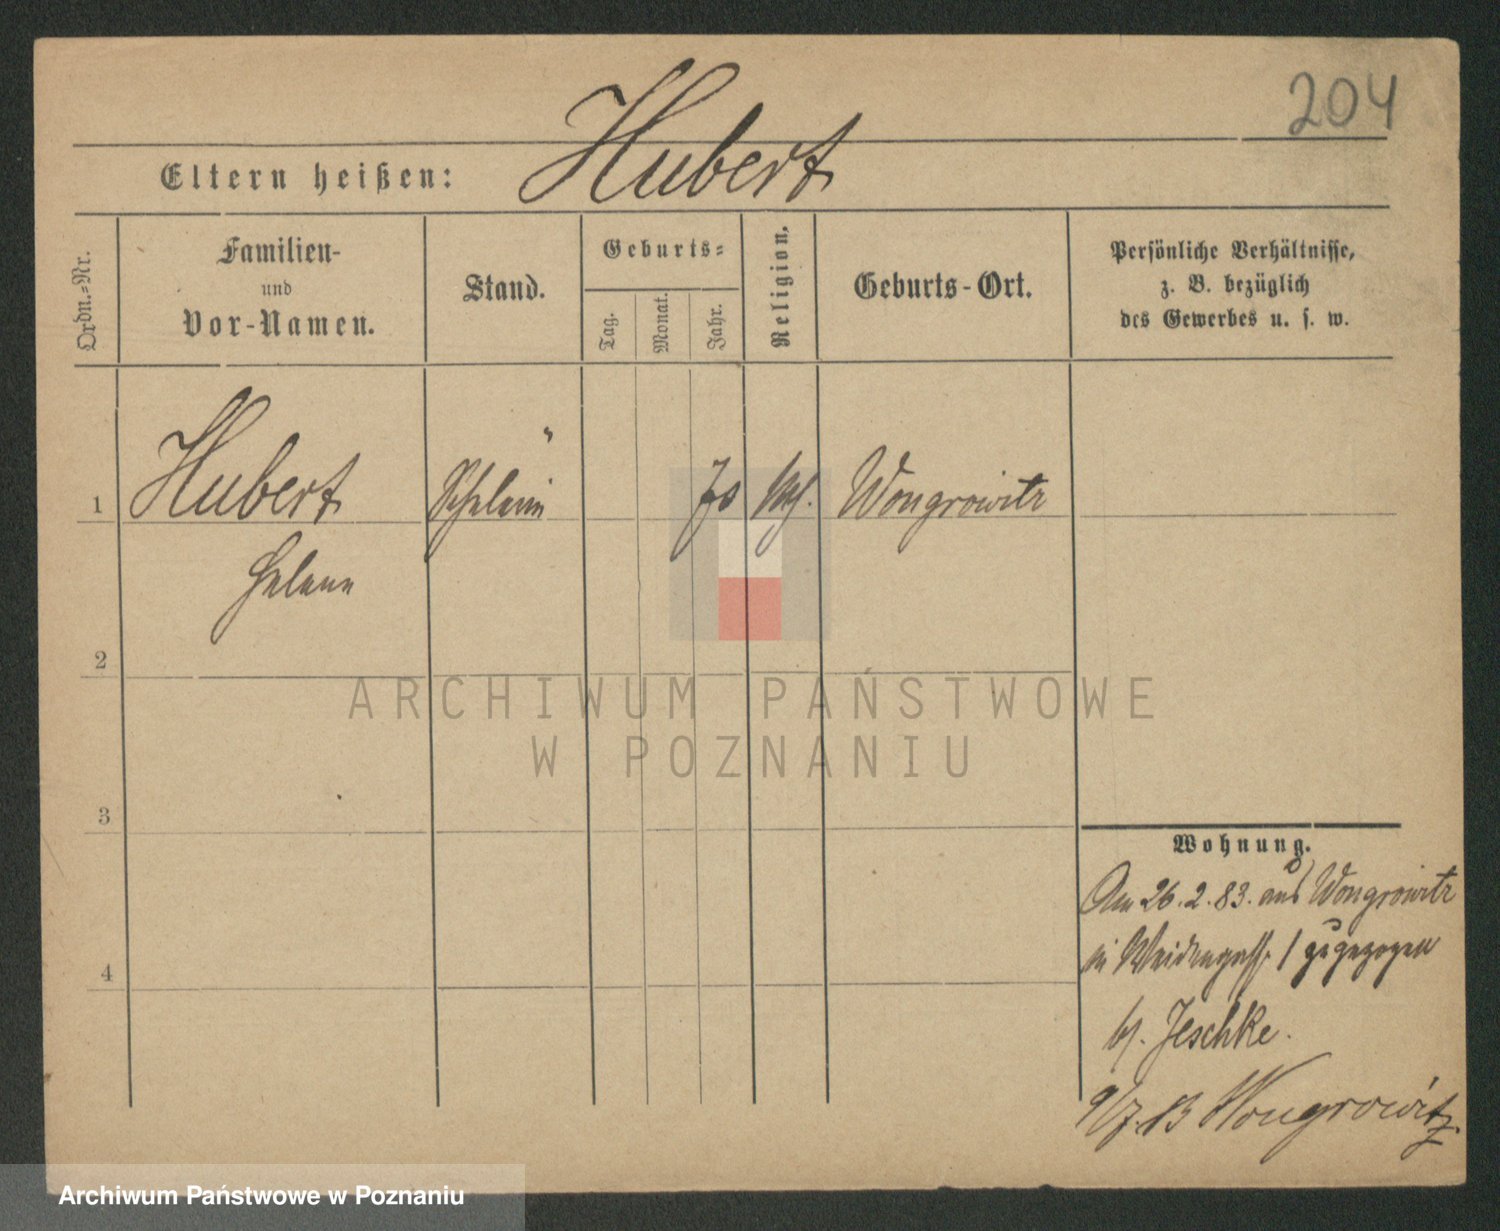 204
Hubert
Eltern heißen:
Ordn.-Nr.
Familien-
und
Vor-Namen.
Stand.
Geburts-
Tag.
Monat.
Jahr.
Religion.
Geburts-Ort.
Persönliche Verhältnisse,
z. B. bezüglich
des Gewerbes u. s. w.
1
Hubert
Wongrowitz
Helene
2
ARCHIWUM PAŃSTWOWE
W POZNANIU
3
Wohnung.
Am 26.2.83. aus Wongrowitz
in 1 zugezogen
4
b/. Jeschke.
Wongrowitz
Archiwum Państwowe w Poznaniu